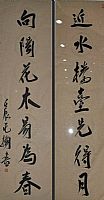 近水樓臺先得月
向陽花木易為春